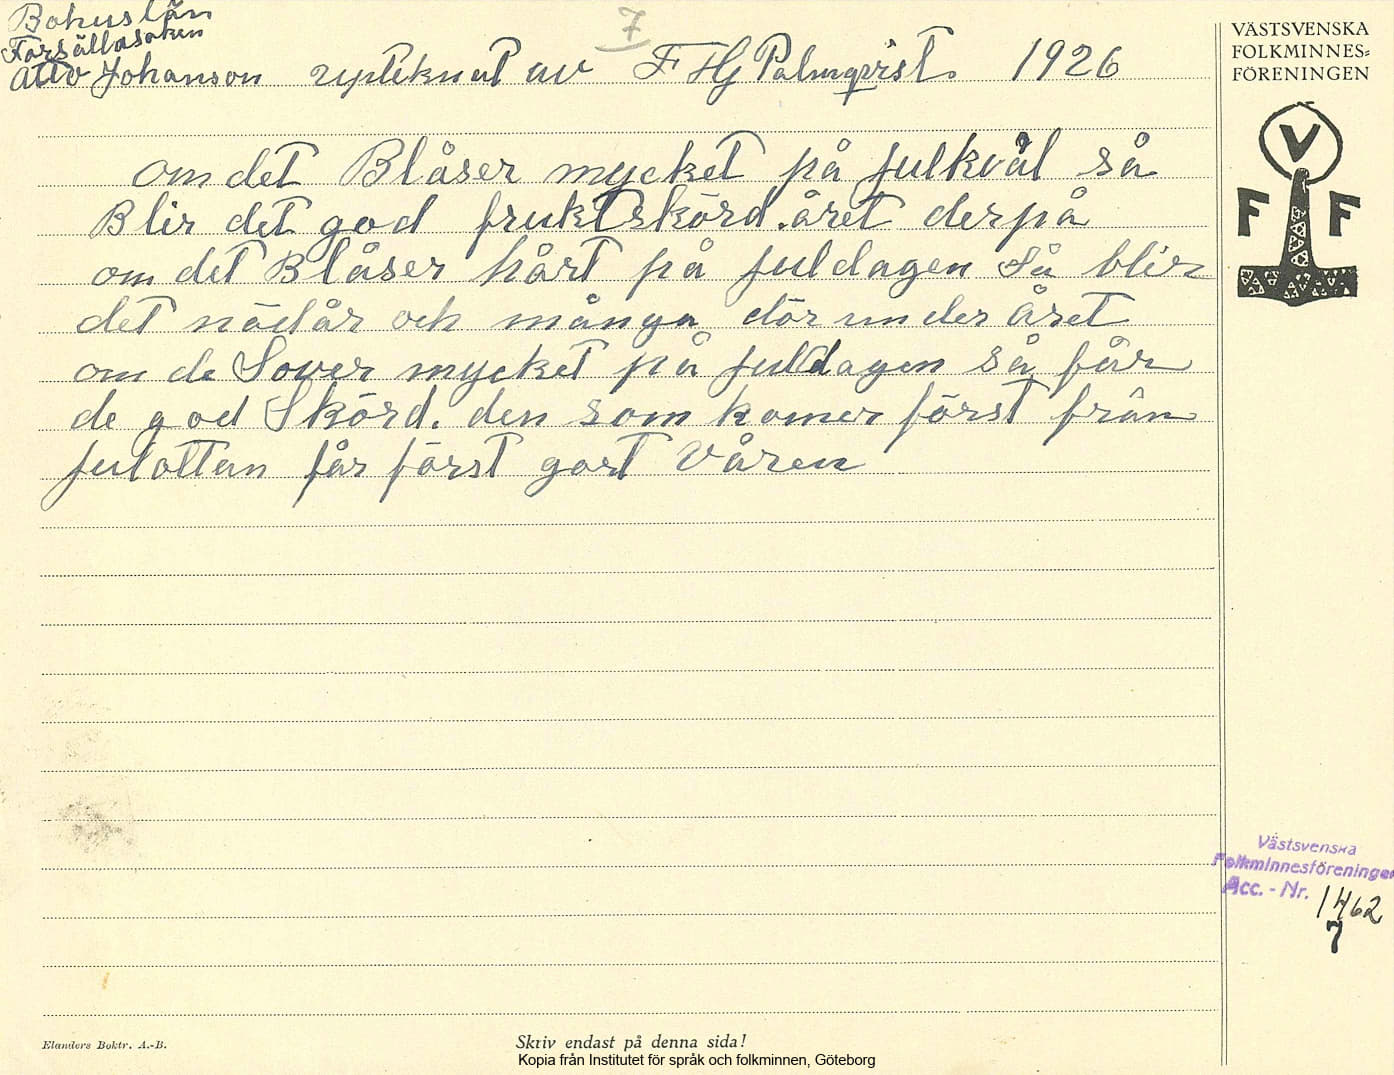 Bohuslän
7
Forshällasoken
Otto Johanson upteknat av F Hj Palmqvist. 1926
om det Blåser mycket på julkväl så
Blir det god fruktskörd. året derpå
om det Blåser hårt på juldagen så blir
det nödår och många dör under Året
om de Sover mycket på juldagen så får
de god Skörd. den som komer först från
julottan får först gort Våren
VÄSTSVENSKA
FOLKMINNES-
FÖRENINGEN
V
F F
Västsvenska
Folkminnesföreningen
Acc. - Nr. 1462
7
Elanders Boktr. A.-B.
Skriv endast på denna sida!
Kopia från Institutet för språk och folkminnen, Göteborg